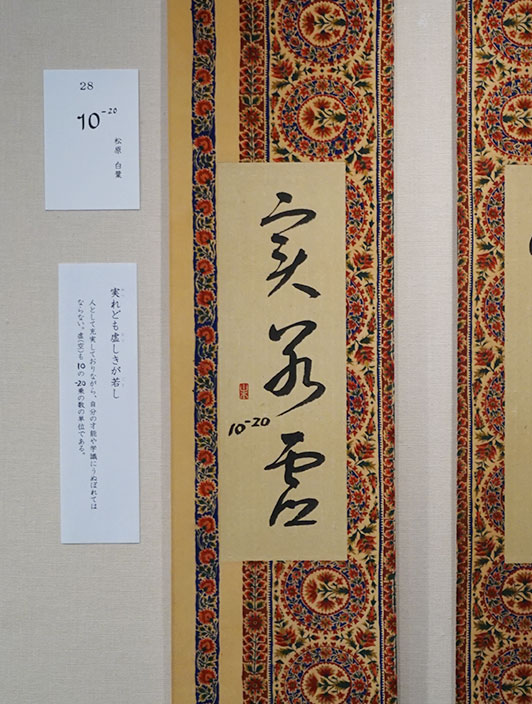 28
10⁻²⁰
松原 白葉
実れども虚しきが若し
人として充実しておりながら、自分の才能や学識にうぬぼれては
ならない。虚（空）も10の-20乗の数の単位である。
実若虚
10⁻²⁰